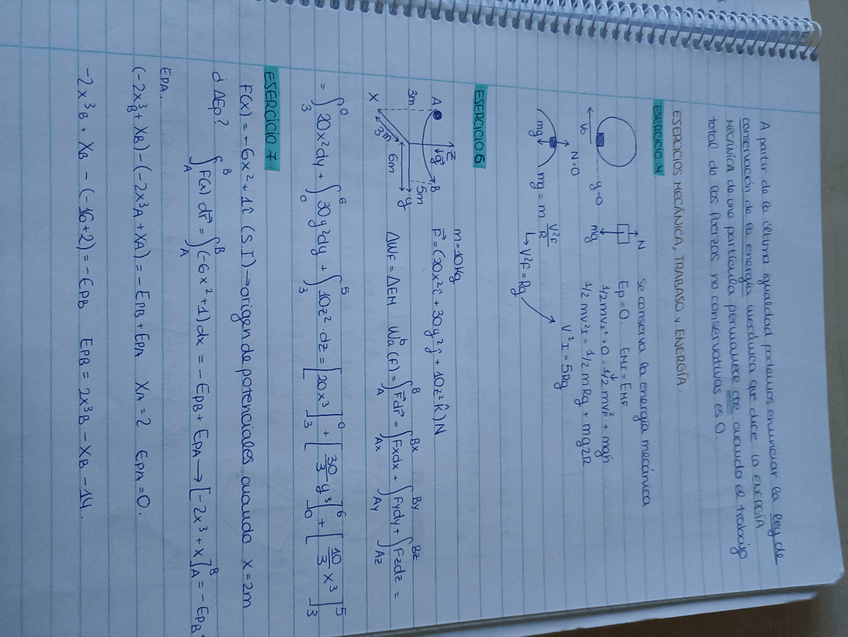 A partir de la última igualdad podemos enunciar la Ley de
conservación de la energía mecánica que dice la ENERGÍA
mecánica de una partícula permanece cte cuando el trabajo
total de las fuerzas no conservativas es 0.
EJERCICIOS MECÁNICA, TRABAJO Y ENERGÍA.
EJERCICIO 4
Se conserva la energía mecánica
N
mg
V0
y=0
Ep=0. EMI = EMF
1/2 mv0² + 0 = 1/2 mvF² + mgh
1/2 mv²I = 1/2 m Rg + mg2R
V²I = 5Rg
N=0
mg
mg = m V²F/R
↳ V²F = Rg
EJERCICIO 6
m=10kg
F = (20x²î + 30y²ĵ + 10z²k̂) N
A
3m
X
3m
6m
Z
g
B
5m
y
ΔWF = ΔEM Wᵇa (F) = ∫ᴮA F dr = ∫ᴮˣAx Fxdx + ∫ᴮʸAy Fydy + ∫ᴮᶻAz Fzdz =
= ∫⁰₃ 20x²dy + ∫⁶₀ 30y²dy + ∫⁵₃ 10z²·dz = [20x³]⁰₃ + [30/3 y³]⁶₀ + [10/3 x³]⁵₃
EJERCICIO 7
F(x) = -6x² + 1î (S.I) → origen de potenciales cuando x = 2m
d ΔEp? ∫ᴮA F(x) dr = ∫ᴮA (-6x²+1) dx = -EPB + EPA → [-2x³ + x]ᴮA = -EPB +
EPA.
(-2x³B + XB) - (-2x³A + XA) = -EPB + EPA XA = 2 EPA = 0.
-2x³B + XB - (-16+2) = -EPB EPB = 2x³B - XB - 14.